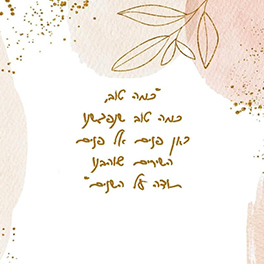 "כמה טוב,
כמה טוב שנפגשנו
כאן פנים אל פנים
השירים שאהבנו
תודה על השנים"